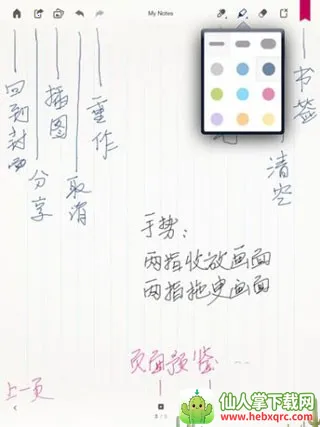 My Notes
回到封面
分享
插图
取消
重作
书签
清空
手势：
两指收放画面
两指拖曳画面
页面预览
上一页
仙人掌下载网
www.hebxqrc.com